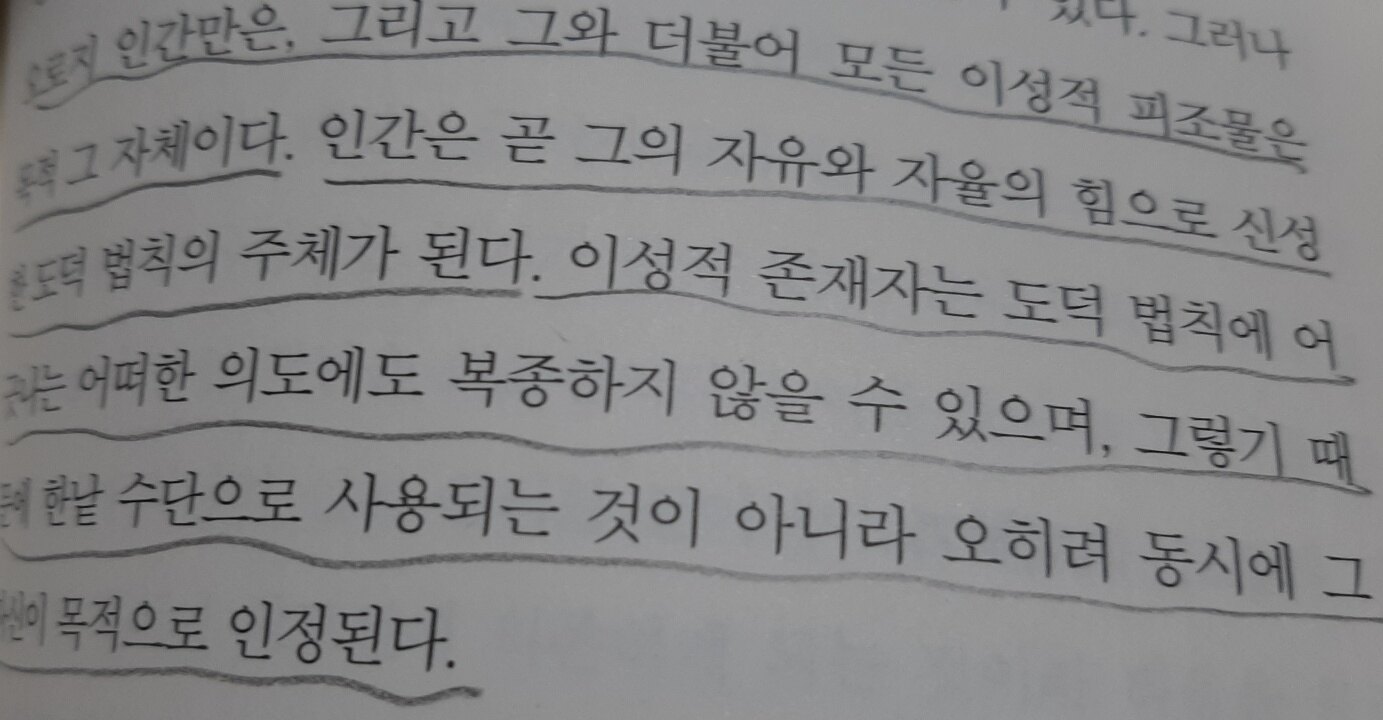 있다. 그러나
오로지 인간만은, 그리고 그와 더불어 모든 이성적 피조물은
목적 그 자체이다. 인간은 곧 그의 자유와 자율의 힘으로 신성
한 도덕 법칙의 주체가 된다. 이성적 존재자는 도덕 법칙에 어
긋나는 어떠한 의도에도 복종하지 않을 수 있으며, 그렇기 때
문에 한낱 수단으로 사용되는 것이 아니라 오히려 동시에 그
자신이 목적으로 인정된다.